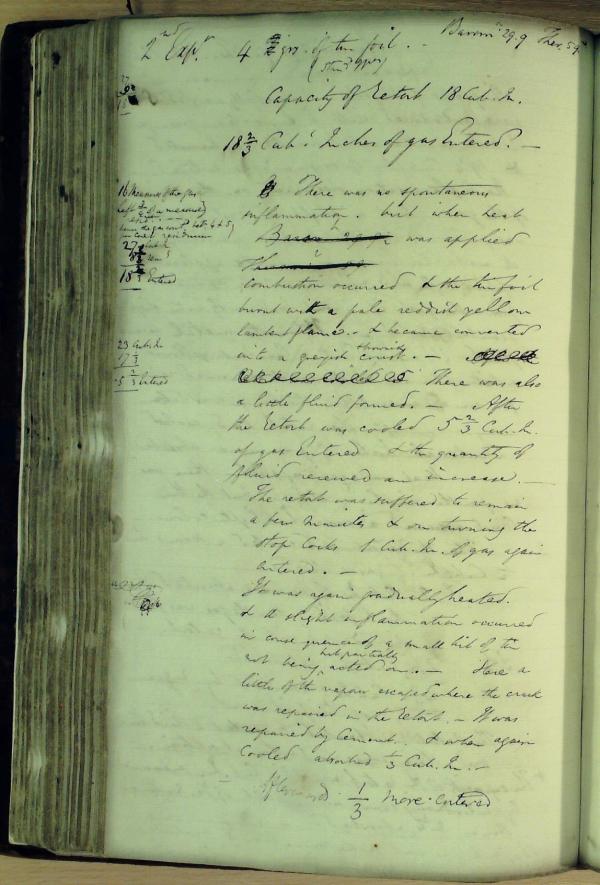 2nd Expt 4 grs. of tin foil. - Barom 29.9 Ther. 54
Capacity of Retort 18 Cub. In.
18 2/3 Cubl. Inches of gas Entered. -
16 Measures of the gas
left
a measure
27
18 2/3 Entered
23 Cub. In
17 1/3
5 2/3 Entered
There was no spontaneous
inflammation. but when heat
was applied
combustion occurred & the tin foil
burnt with a pale reddish yellow
lambent flame. & became converted
into a greyish crust. -
There was also
a little fluid formed. - After
the Retort was cooled 5 2/3 Cub. In.
of gas Entered & the quantity of
fluid received an increase. -
The retort was suffered to remain
a few minutes & on turning the
stop Cocks 1 Cub. In. of gas again
entered. -
It was again gradually heated.
& a slight inflammation occurred
in consequence of a small bit of tin
not being but partially acted on. - Here a
little of the vapour escaped where the crack
was repaired in the Retort. - It was
repaired by Cement. & when again
Cooled absorbed 1/3 Cub. In. -
Afterward 1/3 more entered